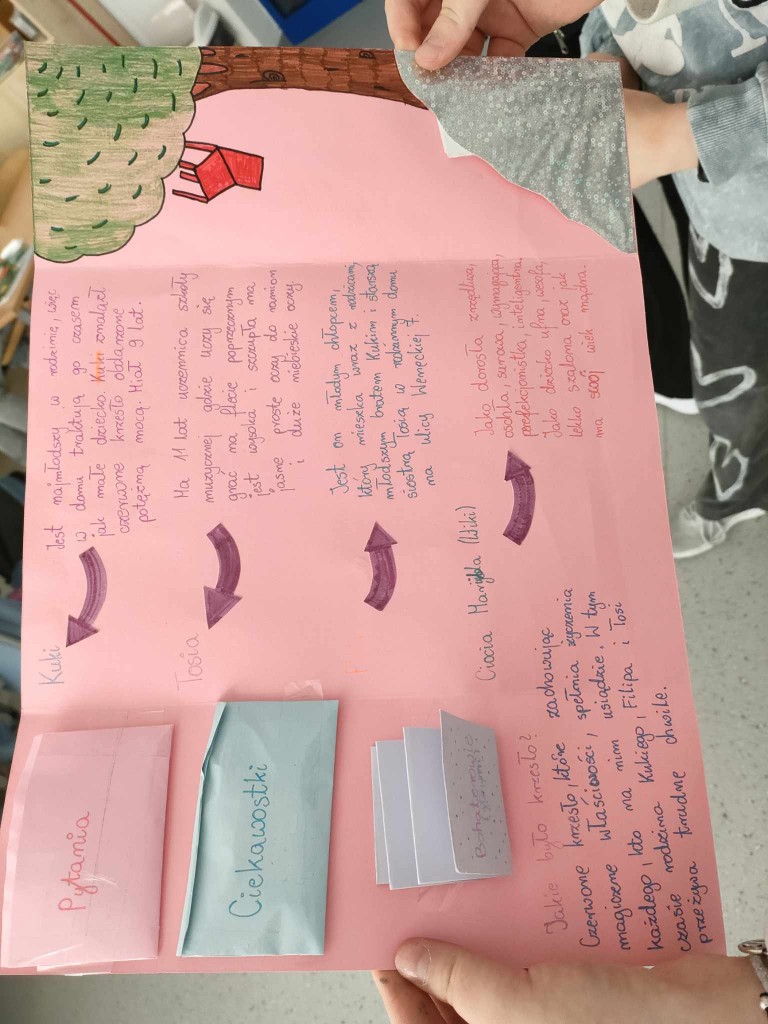 Pytania
Ciekawostki
Bohaterowie
Jakie było krzesło?
Czerwone krzesło, które zachowując
magiczne właściwości, spełnia życzenia
każdego, kto na nim usiądzie. W tym
czasie rodzina Kukiego, Filipa i Tosi
przeżywa trudne chwile.
Kuki
Jest najmłodszy w rodzinie, więc
w domu traktują go czasem
jak małe dziecko. Kuki znalazł
czerwone krzesło obdarzone
potężną mocą. Miał 9 lat.
Tosia
Ma 11 lat uczennica szkoły
muzycznej gdzie uczy się
grać na flecie poprzecznym
jest wysoka i szczupła ma
jasne proste oczy do ramion
i duże niebieskie oczy.
Jest on młodym chłopcem,
który mieszka wraz z rodzicami,
młodszym bratem Kukim i starszą
siostrą Tosią w rodzinnym domu
na ulicy Weneckiej 7.
Ciocia Maryla (Wiki)
Jako dorosła zrzędliwa,
oschła, surowa, wymagająca,
perfekcjonistka, inteligentna.
Jako dziecko ufna, wesoła,
lekko szalona oraz jak
na swój wiek mądra.